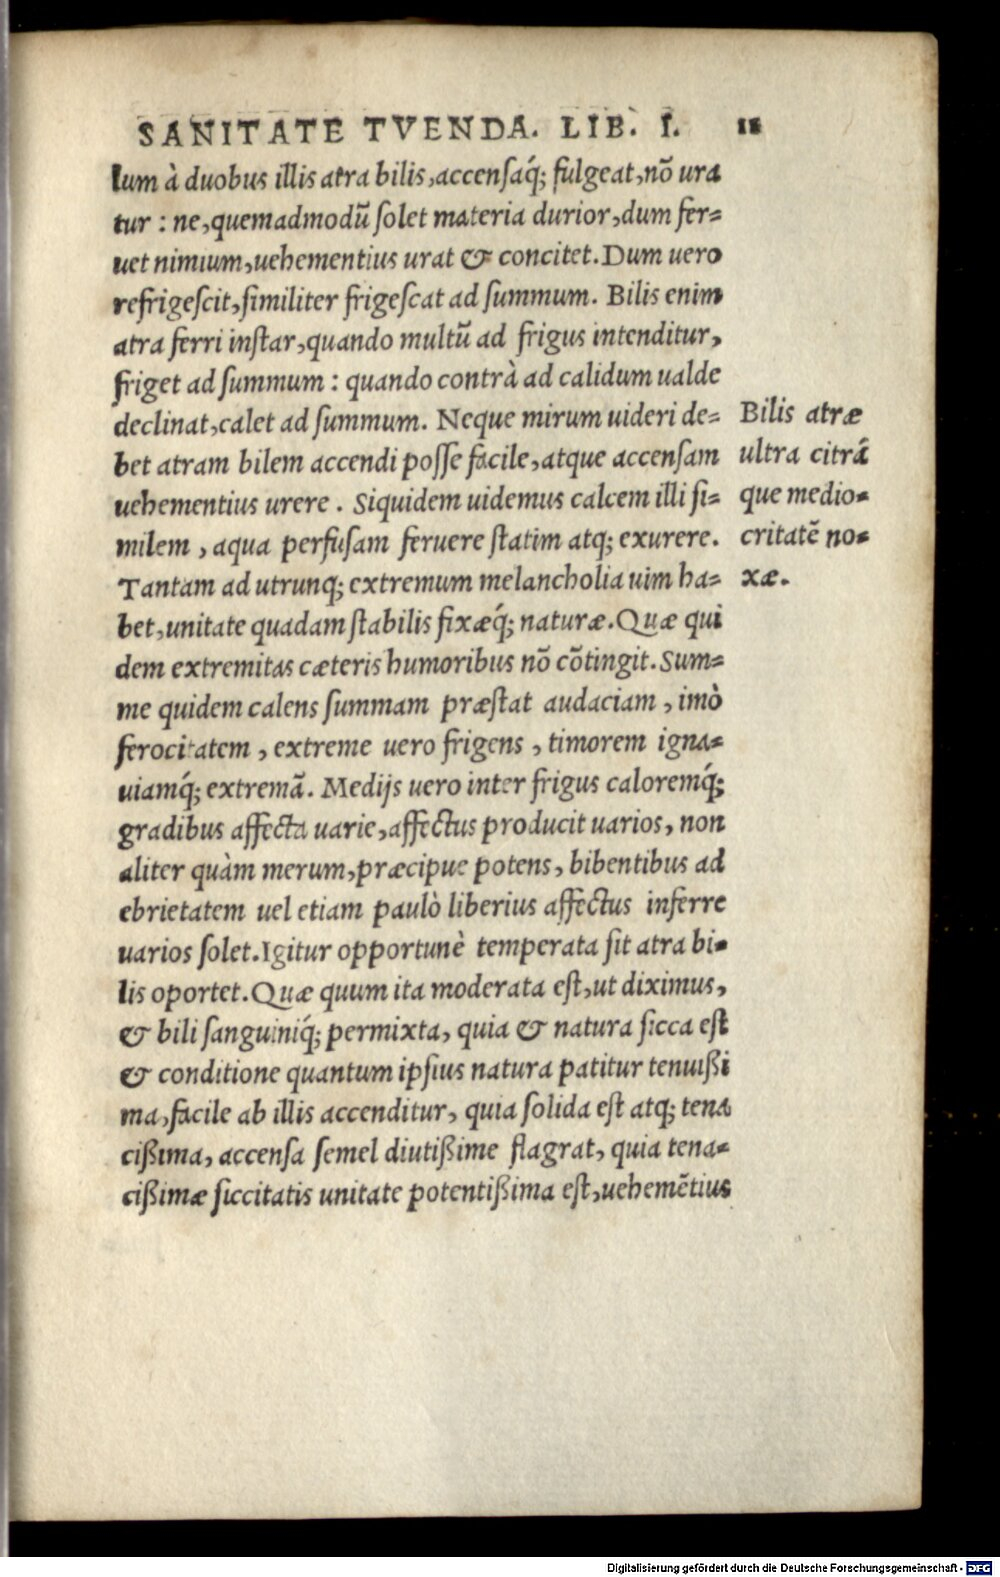 SANITATE TVENDA. LIB. I. 11
lum à duobus illis atra bilis, accensaq́; fulgeat, nō ura
tur : ne, quemadmodū solet materia durior, dum fer=
uet nimium, uehementius urat & concitet. Dum uero
refrigescit, similiter frigescat ad summum. Bilis enim
atra ferri instar, quando multū ad frigus intenditur,
friget ad summum : quando contrà ad calidum ualde
declinat, calet ad summum. Neque mirum uideri de=
bet atram bilem accendi posse facile, atque accensam
uehementius urere . Siquidem uidemus calcem illi si=
milem , aqua perfusam feruere statim atq; exurere.
Tantam ad utrunq; extremum melancholia uim ha=
bet, unitate quadam stabilis fixæq́; naturæ. Quæ qui
dem extremitas cæteris humoribus nō cōtingit. Sum=
me quidem calens summam præstat audaciam , imò
ferocitatem , extreme uero frigens , timorem igna=
uiamq́; extremā. Medijs uero inter frigus caloremq́;
gradibus affecta uarie, affectus producit uarios, non
aliter quàm merum, præcipue potens, bibentibus ad
ebrietatem uel etiam paulò liberius affectus inferre
uarios solet. Igitur opportunè temperata sit atra bi=
lis oportet. Quæ quum ita moderata est, ut diximus,
& bili sanguiniq́; permixta, quia & natura sicca est
& conditione quantum ipsius natura patitur tenuißi
ma, facile ab illis accenditur, quia solida est atq; tena
cißima, accensa semel diutißime flagrat, quia tena=
cißimæ siccitatis unitate potentißima est, uehemētius
Bilis atræ
ultra citrā
que medio=
critatē no=
xæ.
Digitalisierung gefördert durch die Deutsche Forschungsgemeinschaft - DFG